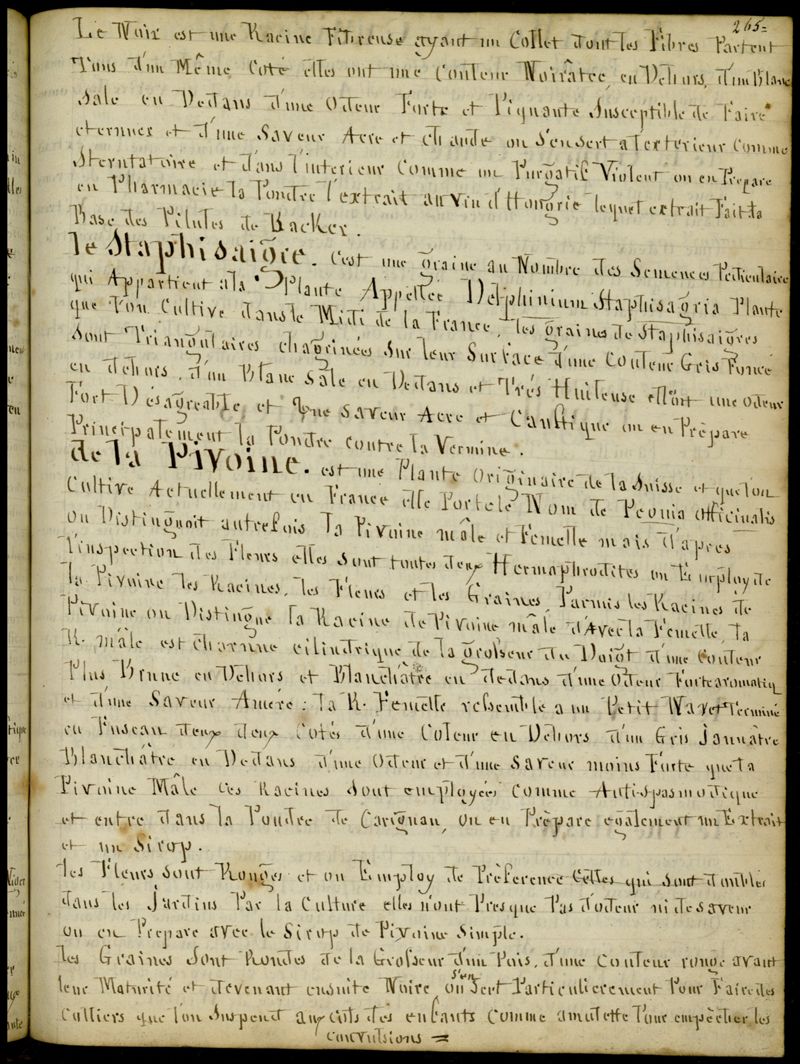 265=
Le Noir est une Racine Fibreuse ayant un Collet dont les Fibres Partent
Tous d'un Même Coté elles ont une Couleur Noirâtre en Dehors, d'un Blanc
Sale en Dedans d'une Odeur Forte et Piquante Susceptible de Faire
eternuer et d'une Saveur Acre et chaude on s'en sert a l'exterieur Comme
Sternutatoire et dans l'interieur Comme un Purgatif Violent on en Prépare
en Pharmacie la Poudre l'extrait au vin d'Hongrie lequel extrait Fait la
Base des Pilules de Backer.
le Staphisaigre. c'est une graine au Nombre des Semences Pediculaire
qui Appartient a la Plante Appellée Delphinium Staphisagria Plante
que l'on Cultive dans le Midi de la France, les graines de Staphisaigres
Sont Triangulaires chagrinées Sur leur Surface d'une Couleur Gris Foncé
en dehors, d'un Blanc Sale en Dedans et Trés Huileuse elle ont une Odeur
Fort Désagreable et Une Saveur Acre et Caustique on en Prépare
Principalement la Poudre contre la Vermine.
de la Pivoine. est une Plante Originaire de la Suisse et que l'on
Cultive Actuellement en France elle Porte le Nom de Peonia officinalis
On Distinguoit autrefois la Pivoine mâle et Femelle mais d'apres
l'inspection des Fleurs elles sont toutes deux Hermaphrodites on Employ de
la Pivoine les Racines, les Fleurs et les Graines, Parmis les Racines de
Pivoine on Distingue la Racine de Pivoine mâle d'Avec la Femelle, la
R. mâle est charnue cilindrique de la grosseur du Doigt d'une Couleur
Plus Brune en Dehors et Blanchâtre en dedans d'une Odeur Forte aromatiq
et d'une Saveur Amere: la R. Femelle ressemble a un Petit Navet Terminé
en Fuseau deux deux Cotés d'une Coleur en Dehors d'un Gris Jaunatre
Blanchâtre en Dedans d'une Odeur et d'une Saveur moins Forte que la
Pivoine Mâle Ces Racines Sont employées Comme Anti-spasmodique
et entre dans la Poudre de Carignan, on en Prépare egalement un Extrait
et un Sirop.
les Fleurs sont Rouges et on Employ de Préférence Celles qui sont doubles
dans les Jardins Par la Culture elles n'ont Presque Pas d'odeur ni de saveur
on en Prepare avec le Sirop de Pivoine Simple.
les Graines Sont Rondes de la Grosseur d'un Pois, d'une Couleur rouge avant
leur Maturité et devenant ensuite Noire, on s'en sert Particulierement Pour Faire des
Colliers que l'on Suspend aux Cols des enfants Comme amulette Pour empêcher les
convulsions =